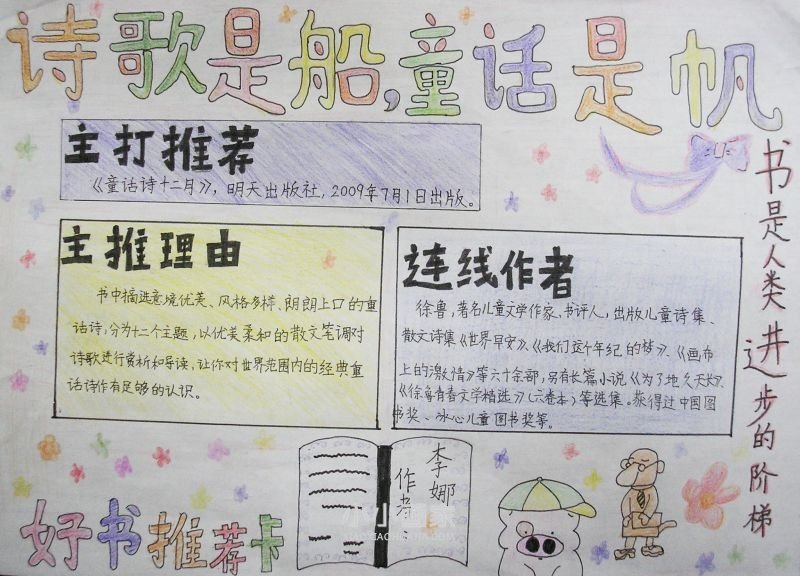 诗歌是船,童话是帆
主打推荐
《童话诗十二月》，明天出版社，2009年7月1日出版。
主推理由
书中摘选意境优美、风格多样、朗朗上口的童
话诗，分为十二个主题，以优美柔和的散文笔调对
诗歌进行赏析和导读，让你对世界范围内的经典童
话诗作有足够的认识。
连线作者
徐鲁，著名儿童文学作家，书评人，出版儿童诗集、
散文诗集《世界早安》、《我们这个年纪的梦》、《画布
上的激情》等六十余部；另有长篇小说《为了地久天长》、
《徐鲁青春文学精选》（六卷本）等选集。获得过中国图
书奖、冰心儿童图书奖等。
书是人类进步的阶梯
李娜
作者
好书推荐卡